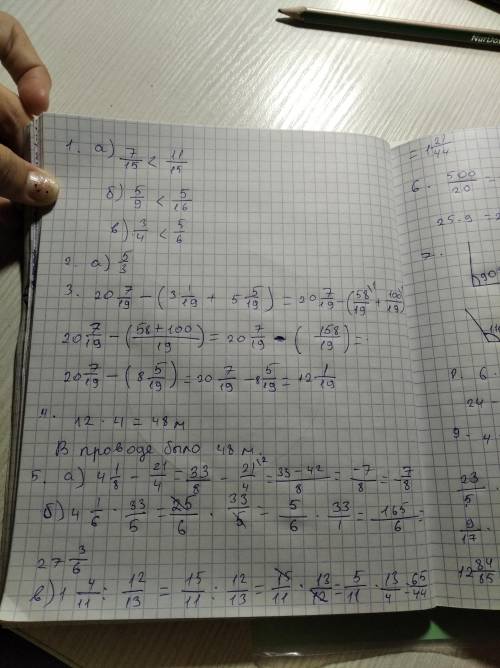 1. а) 7/15 < 11/15
б) 5/9 < 5/16
в) 3/4 < 5/6
2. а) 5/3
3. 20 7/19 - (3 1/19 + 5 5/19) = 20 7/19 - (58/19 + 100/19)
20 7/19 - (58+100/19) = 20 7/19 - (158/19) =
20 7/19 - (8 5/19) = 20 7/19 - 8 5/19 = 12 1/19
4.
12 · 4 = 48 м
В проводе было 48 м.
5. а) 4 1/8 - 21/4 = 33/8 - 21/4 \2 = 33-42/8 = -7/8 = -7/8
б) 4 1/6 · 33/5 = 25/6 · 33/5 = 5/6 · 33/1 = 165/6 =
27 3/6
в) 1 4/11 : 12/13 = 15/11 : 12/13 = 15/11 · 13/12 = 5/11 · 13/4 = 65/44
= 1 21/44
6. 500/20 =
25 · 9 = 2
7.
90°
24 -
9 - 4
23/5
9/17 ·
12 84/85
NurDo